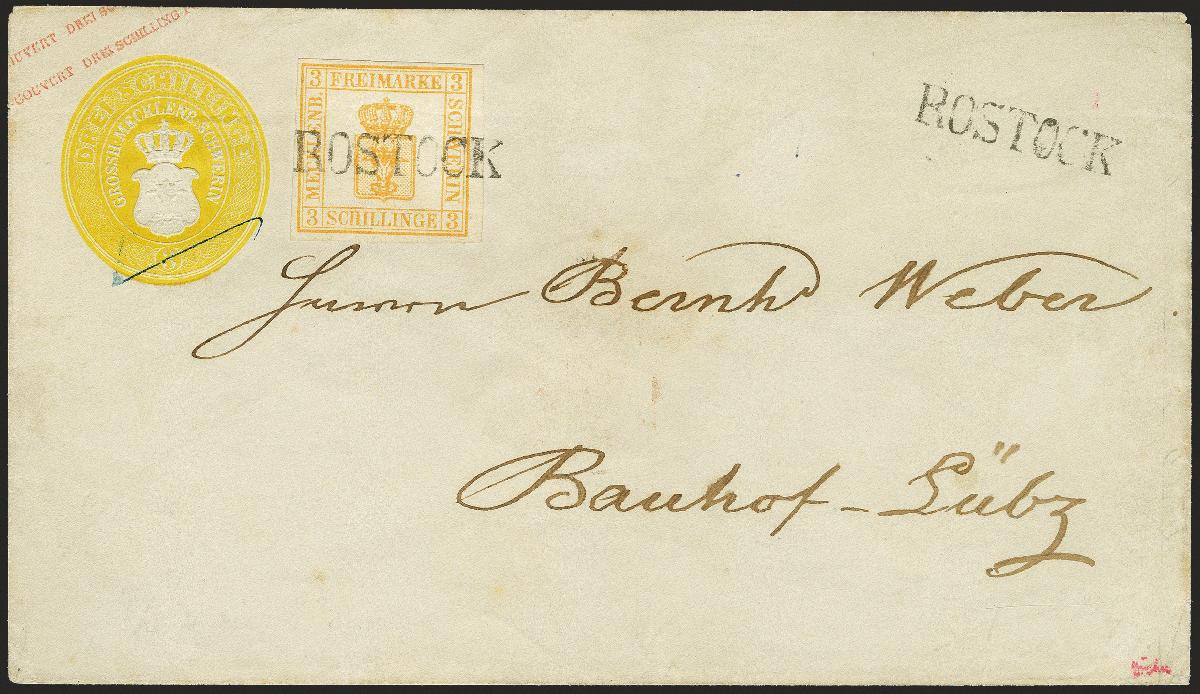 COUVERT DREI SC
COUVERT DREI SCHILLING
DREI SCHILLINGE
GROSSH. MECKLENB. SCHWERIN
3
3 FREIMARKE 3
MECKLENB.
SCHWERIN
3 SCHILLINGE 3
ROSTOCK
ROSTOCK
Herrn Bernhd Weber.
Bauhof - Lübz